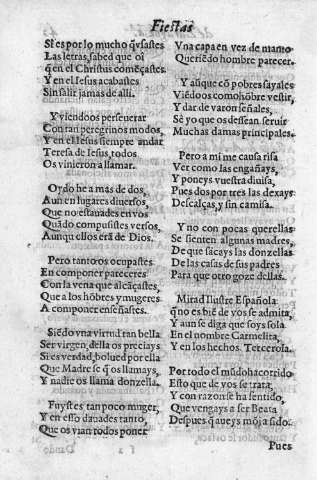 Fiestas
Si es por lo mucho q̃ vsastes
Las letras, sabed que oi
q̃ en el Christus comẽçastes.
Y en el Iesus acabastes
Sin salir jamas de alli.
Y viendoos perseuerar
Con tan peregrinos modos,
Y en el Iesus siempre andar
Teresa de Iesus, todos
Os vinieron a llamar.
Oy do he a mas de dos,
Aun en lugares diuersos,
Que no estauades en vos
Quãdo compusistes versos,
Aunq̃ ellos erã de Dios.
Pero tanto os ocupastes
En componer pareceres
Con la vena que alcãçastes,
Que a los hõbres y mugeres
A componer enseñastes.
Siẽdo vna virtud tan bella
Ser virgen, della os preciays
Si es verdad, bolued por ella
Que Madre se q̃ os llamays,
Y nadie os llama donzella.
Fuystes tan poco muger,
Y en esso dauades tanto,
Que os vian todos poner
Vna capa en vez de manto
Queriẽdo hombre parecer.
Y aũque cõ pobres sayales
Viẽdoos como hõbre vestir,
Y dar de varon señales,
Sẽ yo que os dessean seruir
Muchas damas principales.
Pero a mi me causa risa
Ver como las engañays,
Y poneys vuestra diuisa,
Pues dos por tres las dexays
Descalças, y sin camisa.
Y no con pocas querellas
Se sienten algunas madres,
De que sacays las donzellas
De las casas de sus padres
Para que otro goze dellas.
Mirad Ilustre Española
q̃ no es biẽ de vos se admita,
Y aun se diga que soys sola
En el nombre Carmelita,
Y en los hechos Tercerola.
Por todo el mũdo ha corrido
Esto que de vos se trata,
Y con razon se ha sentido,
Que vengays a ser Beata
Despues q̃ aueys moja sido.
Pues